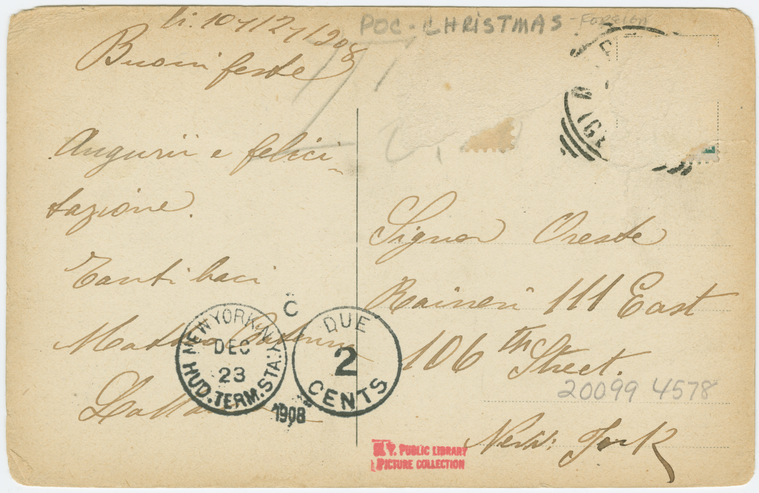 li. 10/12/1908
Buoni feste
Augurii e felici-
tazione.
Tanti baci
POC - CHRISTMAS - FOREIGN
Signor Oreste
Raineri 111 East
106th Street.
New York
20099 4578
NEW YORK, N.Y.
DEC
23
HUD. TERM. STA.
1908
C
DUE
2
CENTS
N. Y. PUBLIC LIBRARY
PICTURE COLLECTION